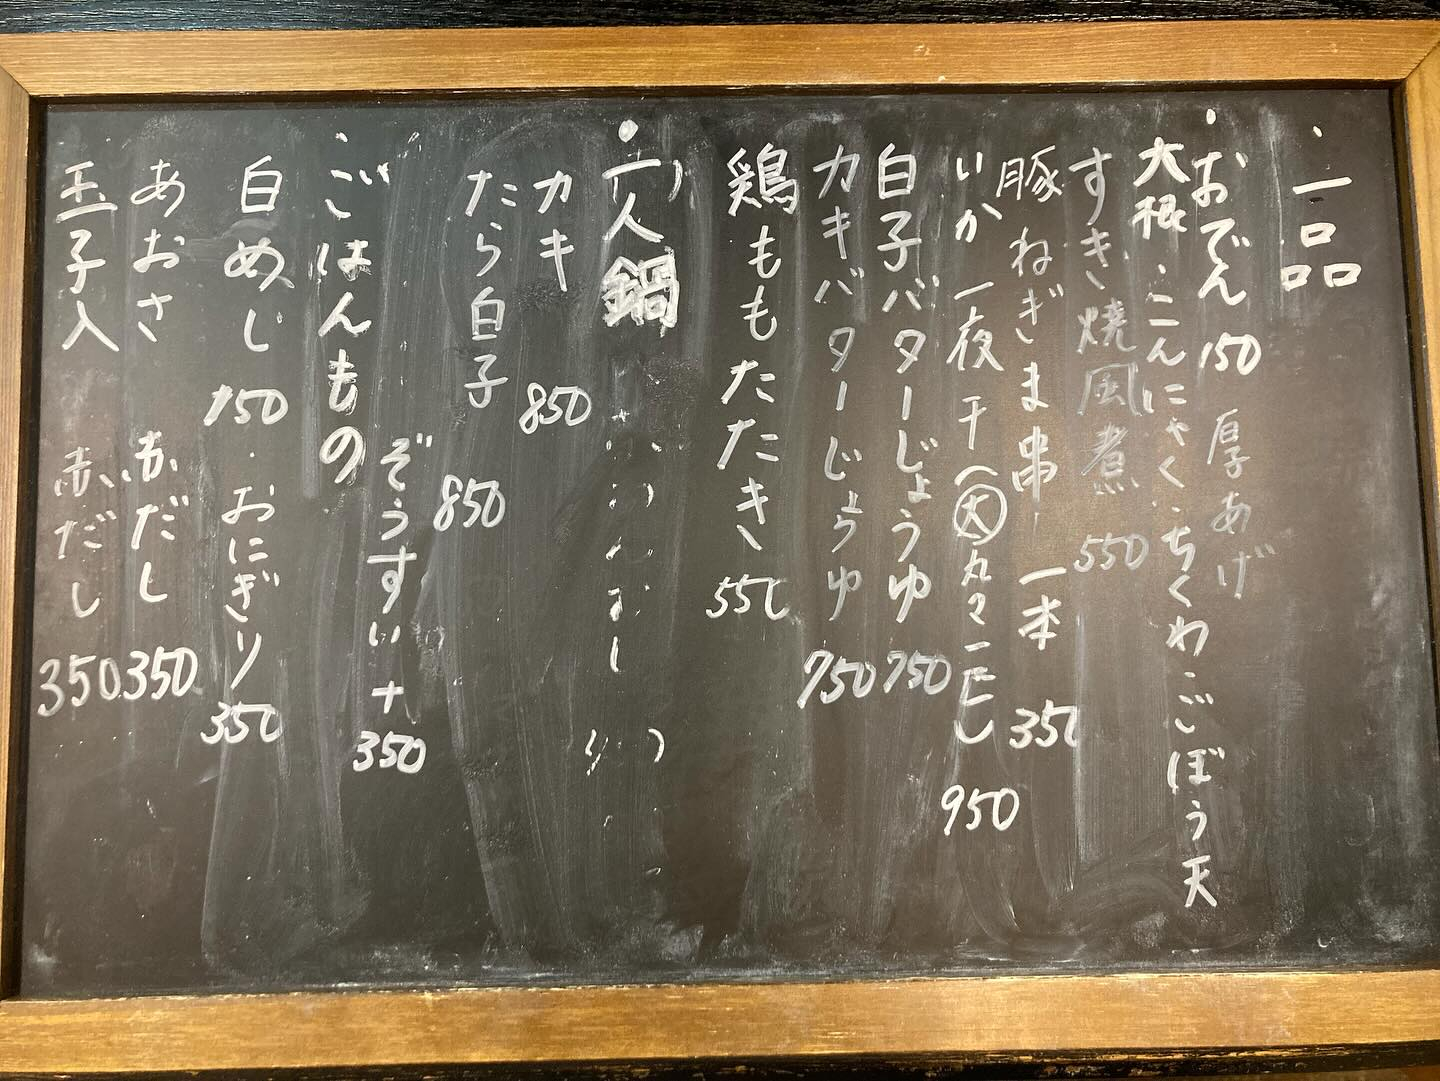 ・一品
・おでん 150 厚あげ
大根・こんにゃく・ちくわ ごぼう天
すき焼風煮 550
豚ねぎま串 一本 350
いか一夜干(大)丸々一匹 950
白子バターじょうゆ 750
カキバターじょうゆ 750
鶏ももたたき 550
・一人鍋
カキ 850
たら白子 850
ぞうすい+350
・ごはんもの
白めし 150・おにぎり 350
あおさ 赤だし 350
玉子入 赤だし 350